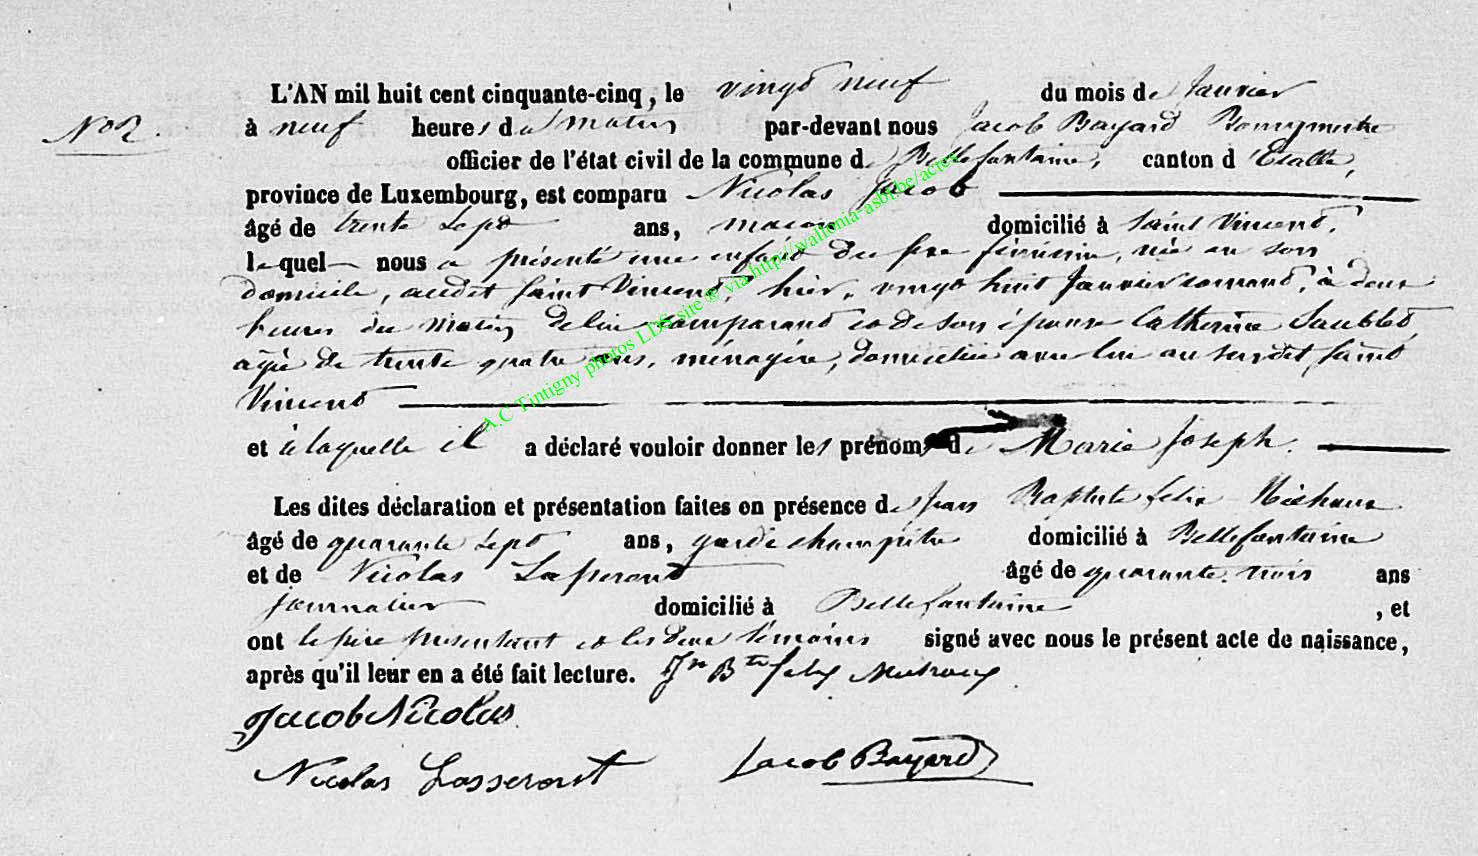 L'AN mil huit cent cinquante-cinq, le vingt neuf du mois de Janvier
N° 2.
à neuf heures du matin par-devant nous Jacob Bayard Bourgmestre
officier de l'état civil de la commune de Bellefontaine, canton d'Etalle,
province de Luxembourg, est comparu Nicolas Jacob
âgé de trente sept ans, maçon domicilié à Saint Vincent,
lequel nous a présenté une enfant du sexe féminin, née en son
domicile, audit Saint Vincent, hier, vingt huit Janvier courant, à deux
heures du matin de lui comparant et de son épouse Catherine
agée de trente quatre ans, ménagère, domiciliée avec lui au susdit Saint
Vincent
et à laquelle il a déclaré vouloir donner les prénoms de Marie Joseph.
Les dites déclaration et présentation faites en présence de Jean Baptiste Felix Michaux
âgé de quarante sept ans, garde champêtre domicilié à Bellefontaine
et de Nicolas Lasseront âgé de quarante trois ans
journalier domicilié à Bellefontaine, et
ont le père présentant et les deux témoins signé avec nous le présent acte de naissance,
après qu'il leur en a été fait lecture. Jn Bte felix
Jacob Nicolas
Nicolas Lasseront Jacob Bayard
A.C Tintigny photos LDS site ® via http://wallonia-asbl.be/actes